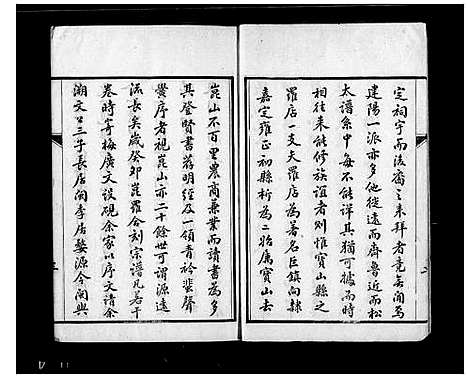 定祠宇而法裔之来拜者竟無聞焉
建陽一派亦多他徙遠而齊魯近而松
太譜系中每不能詳其猶可據而時
相往来能修族誼者則惟寶山縣之
羅店一支夫羅店為著名巨鎮向隸
嘉定雍正初縣析為二始属寶山去
崑山不百里農商兼業而讀書為多
其登賢書荐明經及一領青衿蜚聲
黌序者視崑山亦二十餘世可謂源遠
流長矣歲癸卯崑羅合刻宗譜凡若干
卷時寄梅廣文設硯余家以序文請余
溯文公三子長居閩季居婺源今閩與